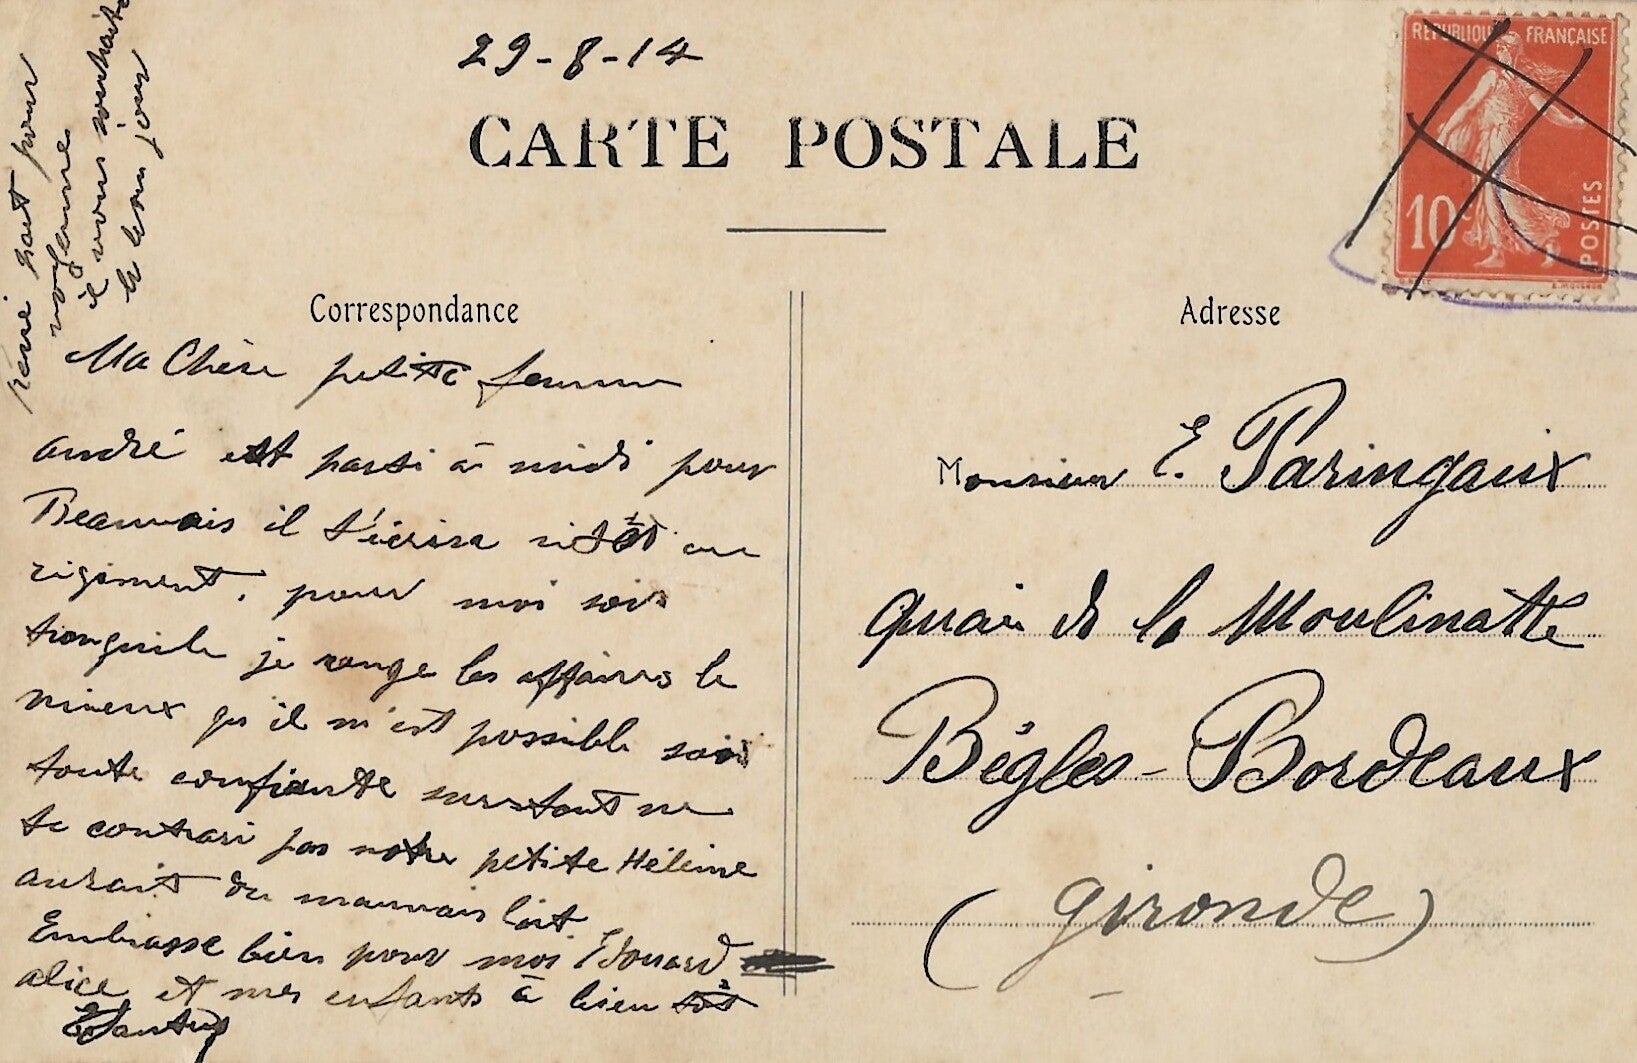 29-8-14
CARTE POSTALE
REPUBLIQUE FRANÇAISE
10c
POSTES
Correspondance
Adresse
Ma Chère petite femme
andré est parti à midi pour
Beauvais il t'écrira sitôt au
régiment. pour moi sois
tranquile je range les affaires le
mieux qu'il m'est possible sois
toute confiante surtout ne
te contrari pas notre petite Hélène
aurait du mauvais lait
Embrasse bien pour moi Edouard
alice et mes enfants à bien tôt
Monsieur E. Paringaux
quai de la Moulinatte
Bègles - Bordeaux
(Gironde)
René part pour
il vous souhaite
le bon jour